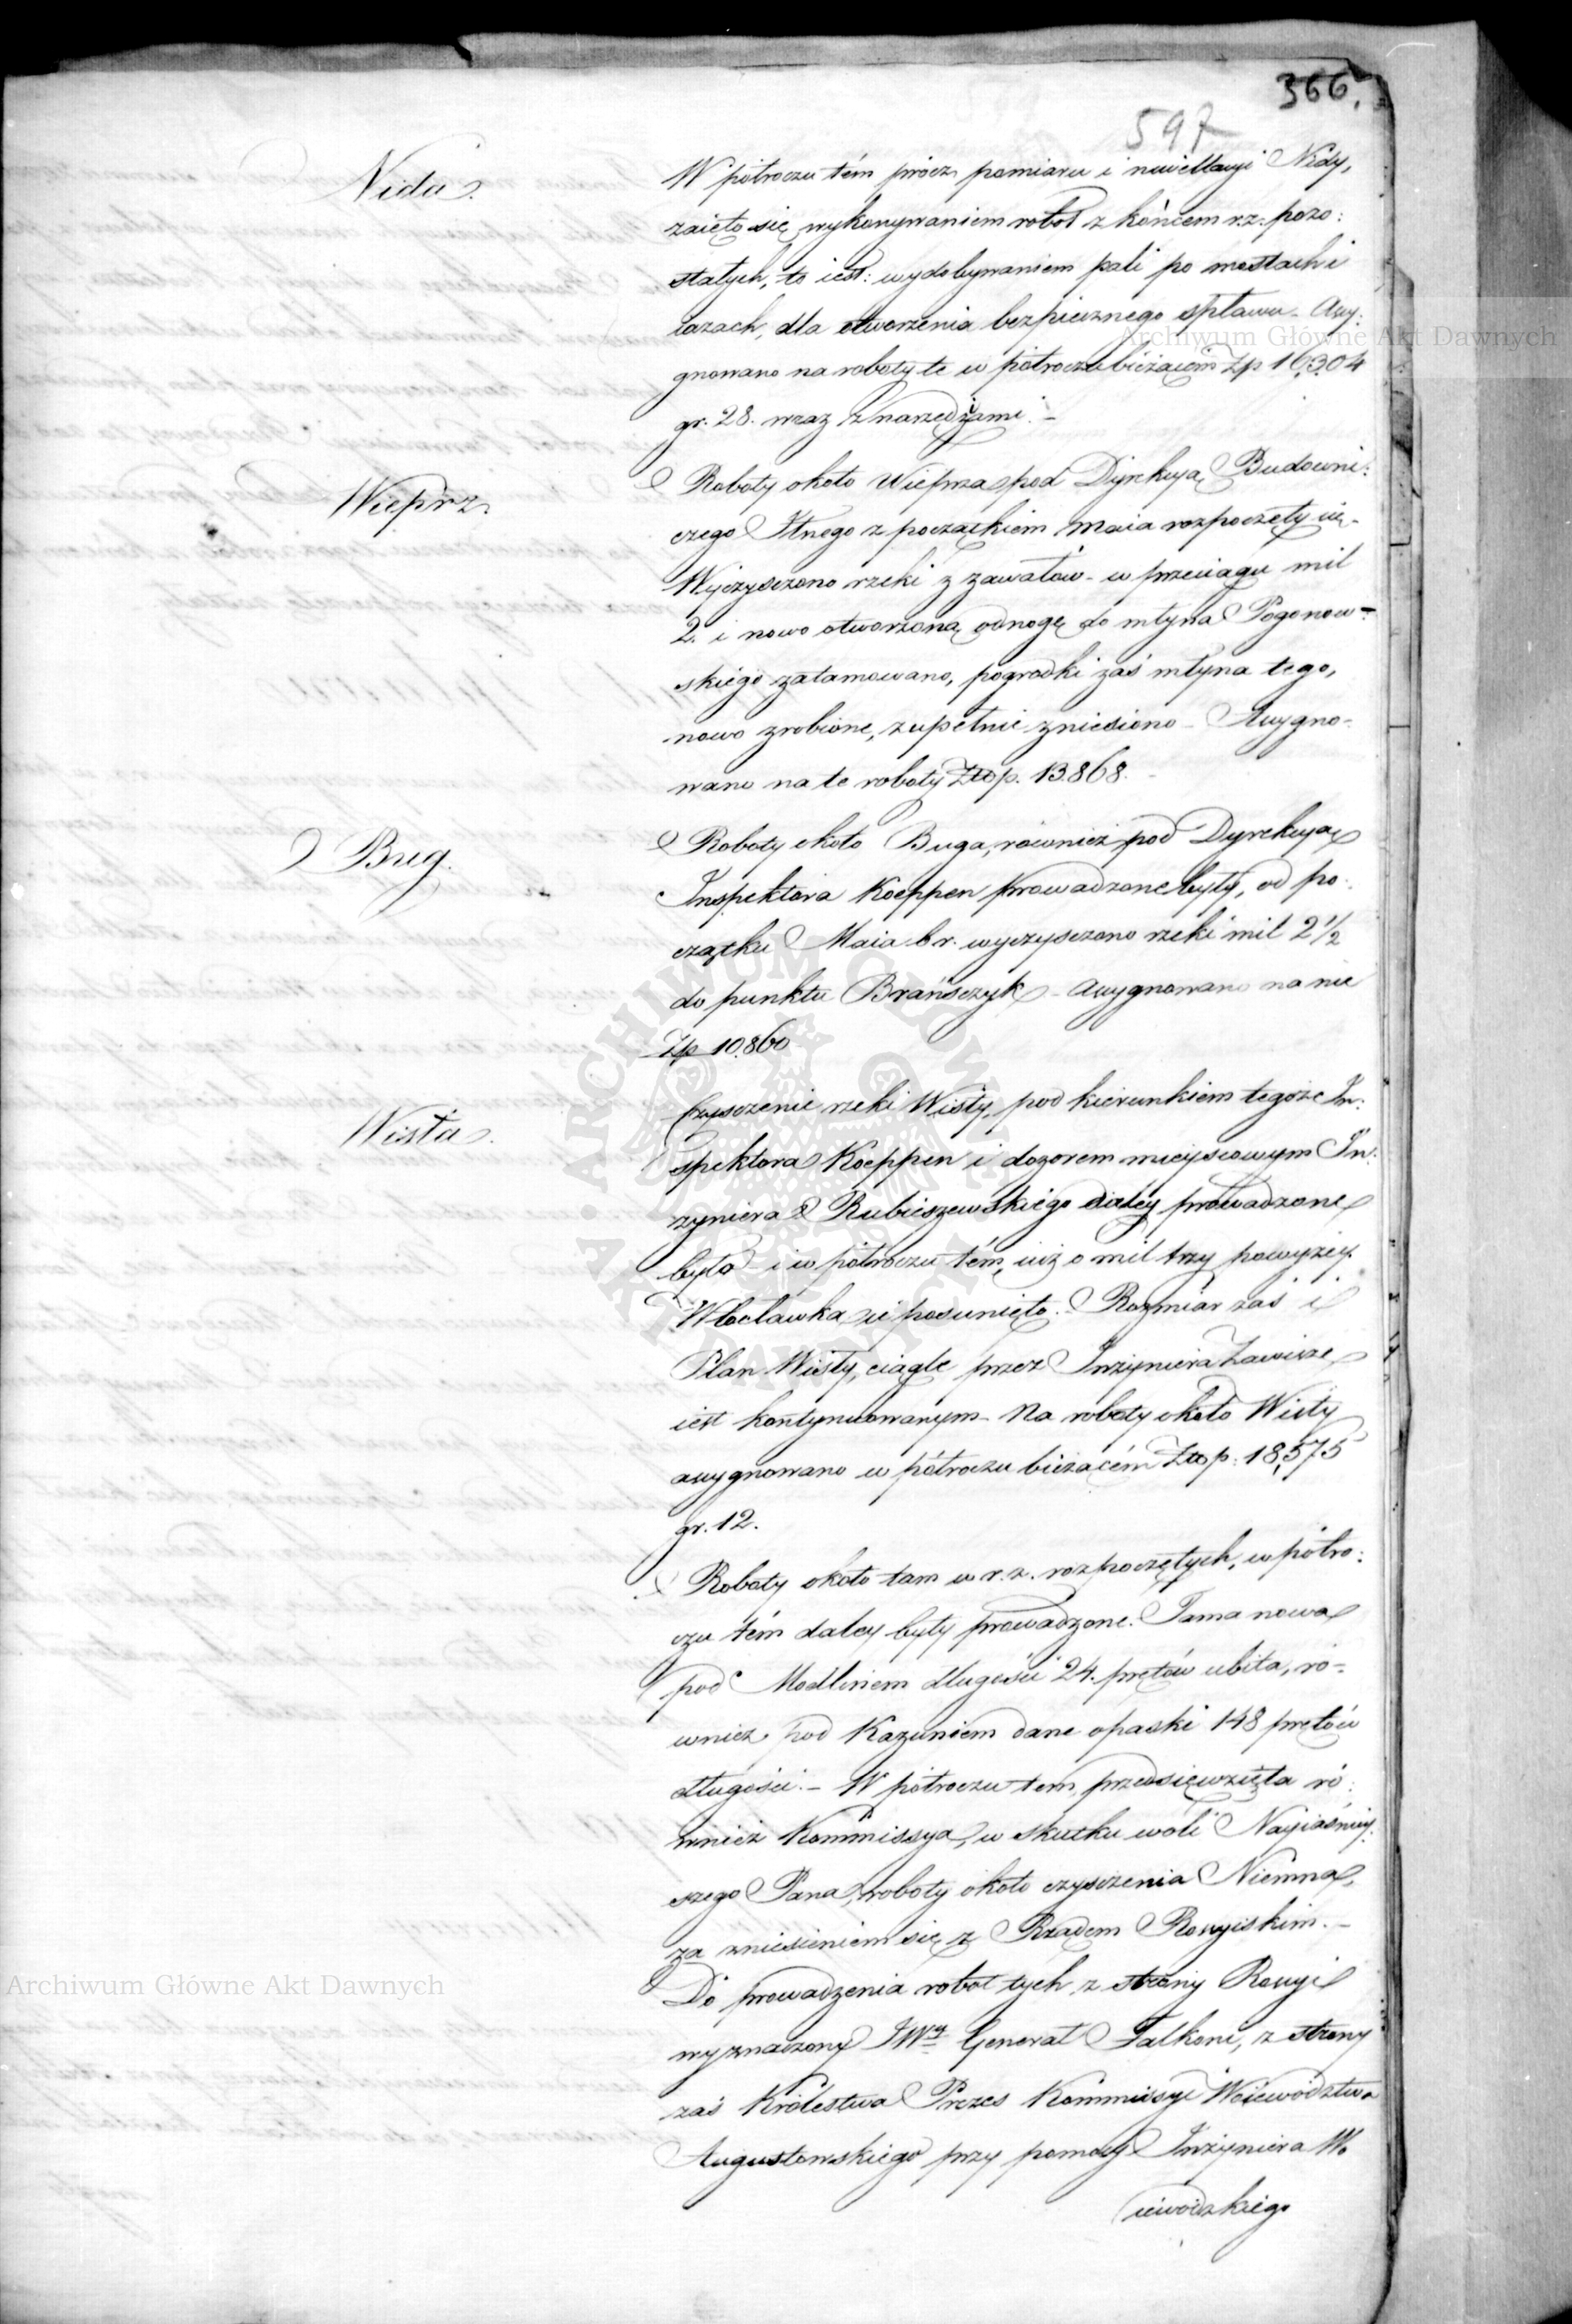 366.
597
Nida.
W półroczu tém prócz pomiaru i niwellacyi Nidy,
zaięto się wykonywaniem robot z końcem r.z. pozo:
stałych, to iest: wydobywaniem pali po mostach i
iazach, dla otworzenia bezpiecznego spławu - Assy:
gnowano na roboty te w półroczu bieżącém Zp 16,304
gr. 28. wraz z narzędziami. -
Wieprz.
Roboty około Wieprza pod Dyrekcyą Budowni:
czego Itnego z początkiem Maia rozpoczęty się -
Wyczyszczono rzeki z zawałów - w przeciągu mil
2. i nowo otworzoną odnogę do młyna Pogonow -
skiego zatamowano, pogrodki zaś młyna tego,
nowo zrobione, zupełnie zniesiono - Assygno -
wano na te roboty Złop. 13.868. -
Bug.
Roboty około Buga, również pod Dyrekcyą
Inspektora Koeppen prowadzone były, od po:
czątku Maia b.r. wyczyszczono rzeki mil 2 1/2
do punktu Brańszczyk - assygnowano na nie
Zp 10.860
Wisła.
Czyszczenie rzeki Wisły, pod kierunkiem tegoże In:
spektora Koeppen i dozorem mieyscowym In:
zyniera Rubieszewskiego daley prowadzone
było - i w półroczu tém, iuż o mil trzy powyżey
Włocławka się posunięto. Rozmiar zaś i
Plan Wisły, ciągle przez Inżyniera Zawiszę
iest kontynuowanym - Na roboty około Wisły
assygnowano w półroczu bieżącém Złop: 18,575
gr. 12.
Roboty około tam w r. z. rozpoczętych, w półro:
czu tém daley były prowadzone. Tama nowa
pod Modlinem długości 24. prętów ubita, ró -
wnież pod Kazuniem dane opaski 148 prętów
długości. - W półroczu tem przedsięwzięła ró:
wnież Kommissya, w skutku woli Nayiaśniey:
szego Pana, roboty około czyszczenia Niemna,
za zniesieniem się z Rządem Rossyiskim. -
Do prowadzenia robot tych z strony Rossyi
wyznaczony JWny Generał Falkoni, z strony
zaś Królestwa Prezes Kommissyi Woiewództwa
Augustowskiego przy pomocy Inżyniera Wo
iewódzkiego
Archiwum Główne Akt Dawnych
Archiwum Główne Akt Dawnych